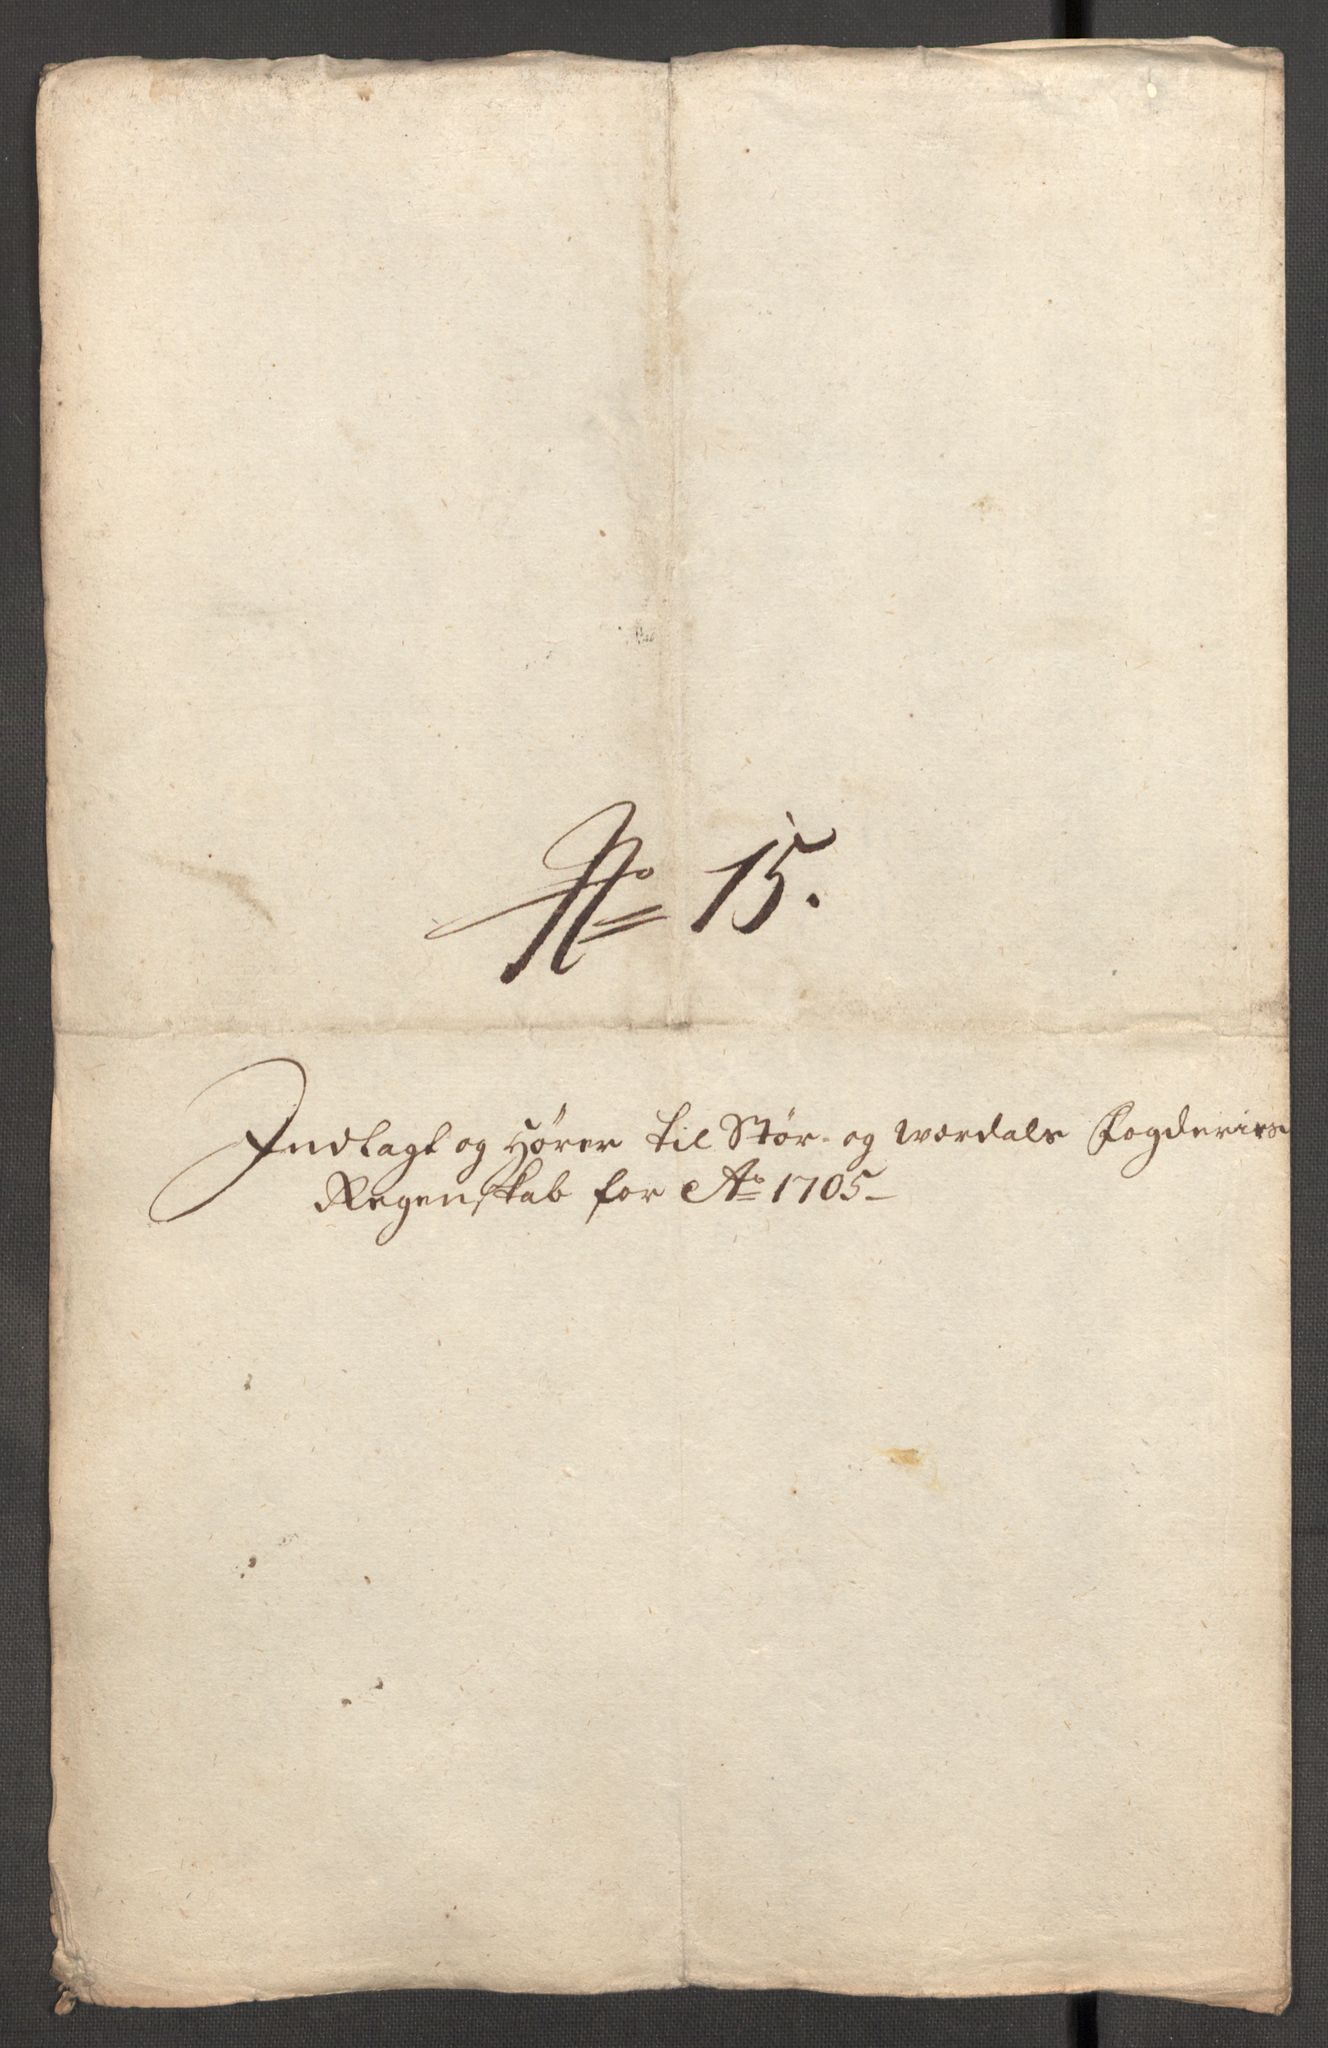 No 15.
Indlagt og Hører til Stør- og Werdals Fogderies
Regenskab for Ao 1705